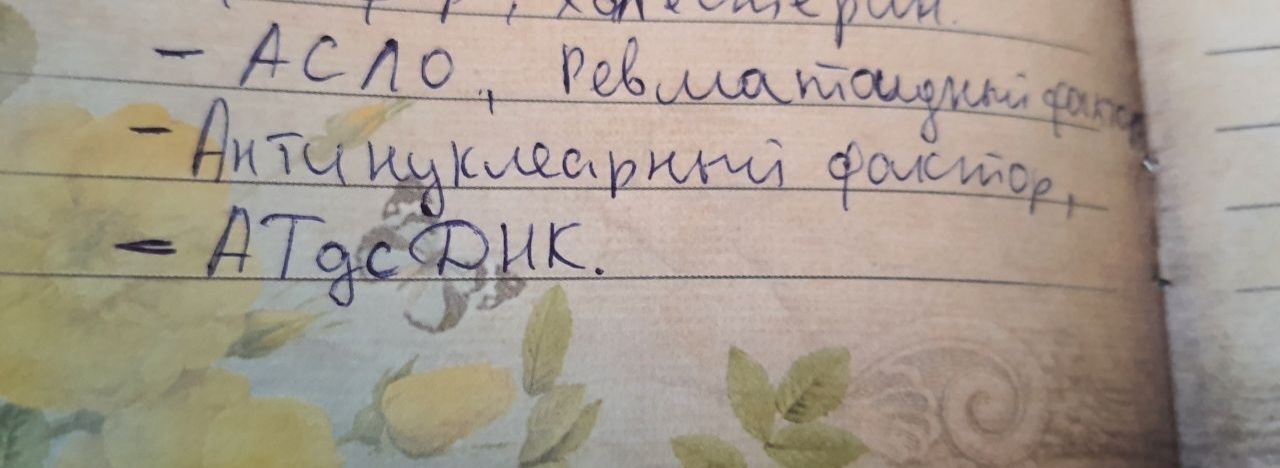 холестерин.
- АСЛО, Ревматоидный фактор
- Антинуклеарный фактор,
- АТдсДНК.